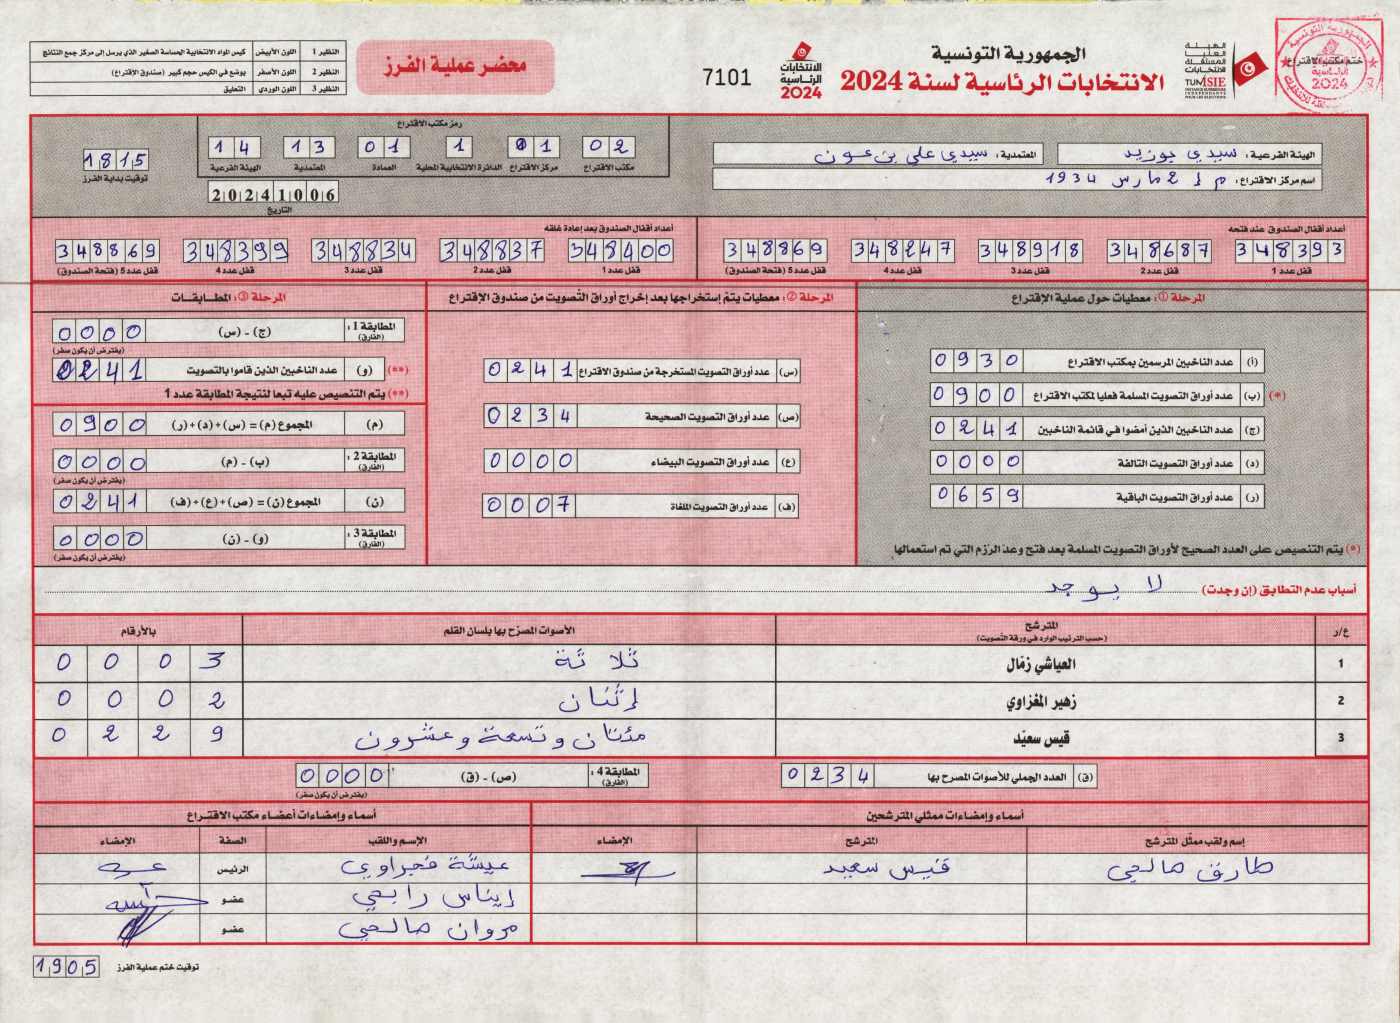 الجمهورية التونسية
الانتخابات الرئاسية لسنة 2024
الهيئة العليا المستقلة للانتخابات
TUNISIE
ختم مكتب الاقتراع
الانتخابات الرئاسية 2024
7101
محضر عملية الفرز
النظير 1 اللون الأبيض كيس المواد الانتخابية الحساسة الصغير الذي يرسل إلى مركز جمع النتائج
النظير 2 اللون الأصفر يوضع في الكيس حجم كبير (صندوق الإقتراع)
النظير 3 اللون الوردي التعليق
الهيئة الفرعية: سيدي بوزيد المعتمدية: سيدي علي بن عون
اسم مركز الاقتراع: م إ 2 مارس 1934
رمز مكتب الاقتراع
02 01 1 01 13 14
مكتب الاقتراع مركز الاقتراع الدائرة الانتخابية المحلية العمادة المعتمدية الهيئة الفرعية
20241006
التاريخ
1815
توقيت بداية الفرز
أعداد أقفال الصندوق عند فتحه
348393 348687 348918 348247 348869
قفل عدد 1 قفل عدد 2 قفل عدد 3 قفل عدد 4 قفل عدد 5 (فتحة الصندوق)
أعداد أقفال الصندوق بعد إعادة غلقه
348400 348837 348834 348399 348869
قفل عدد 1 قفل عدد 2 قفل عدد 3 قفل عدد 4 قفل عدد 5 (فتحة الصندوق)
المرحلة ①: معطيات حول عملية الإقتراع
(أ) عدد الناخبين المرسمين بمكتب الاقتراع 0930
(*) (ب) عدد أوراق التصويت المسلمة فعليا لمكتب الاقتراع 0900
(ج) عدد الناخبين الذين أمضوا في قائمة الناخبين 0241
(د) عدد أوراق التصويت التالفة 0000
(ر) عدد أوراق التصويت الباقية 0659
(*) يتم التنصيص على العدد الصحيح لأوراق التصويت المسلمة بعد فتح وعدّ الرّزم التي تم استعمالها
المرحلة ②: معطيات يتمّ إستخراجها بعد إخراج أوراق التّصويت من صندوق الإقتراع
(س) عدد أوراق التصويت المستخرجة من صندوق الاقتراع 0241
(ص) عدد أوراق التصويت الصحيحة 0234
(ع) عدد أوراق التصويت البيضاء 0000
(ف) عدد أوراق التصويت الملغاة 0007
المرحلة ③: المطابقات
المطابقة 1: (الفارق) (ج) - (س) 0000
(يفترض أن يكون صفر)
(**) (و) عدد الناخبين الذين قاموا بالتصويت 0241
(**) يتم التنصيص عليه تبعا لنتيجة المطابقة عدد 1
(م) المجموع (م) = (س)+(د)+(ر) 0900
المطابقة 2: (الفارق) (ب) - (م) 0000
(يفترض أن يكون صفر)
(ن) المجموع (ن) = (ص)+(ع)+(ف) 0241
المطابقة 3: (الفارق) (و) - (ن) 0000
(يفترض أن يكون صفر)
أسباب عدم التطابق (إن وجدت) لا يوجد
ع/ر المترشح الأصوات المصرّح بها بلسان القلم بالأرقام
(حسب الترتيب الوارد في ورقة التّصويت)
1 العياشي زمّال ثلاثة 0003
2 زهير المغزاوي إثنان 0002
3 قيس سعيّد مئتان وتسعة وعشرون 0229
(ق) العدد الجملي للأصوات المصرح بها 0234
المطابقة 4: (الفارق) (ص) - (ق) 0000
(يفترض أن يكون صفر)
أسماء وإمضاءات ممثلي المترشحين
إسم ولقب ممثّل المترشح المترشح الإمضاء
طارق صالحي قيس سعيد
أسماء وإمضاءات أعضاء مكتب الاقتراع
الإسم واللقب الصفة الإمضاء
عيشة فجراوي الرئيس
إيناس رابحي عضو
مروان صالحي عضو
توقيت ختم عملية الفرز 1905